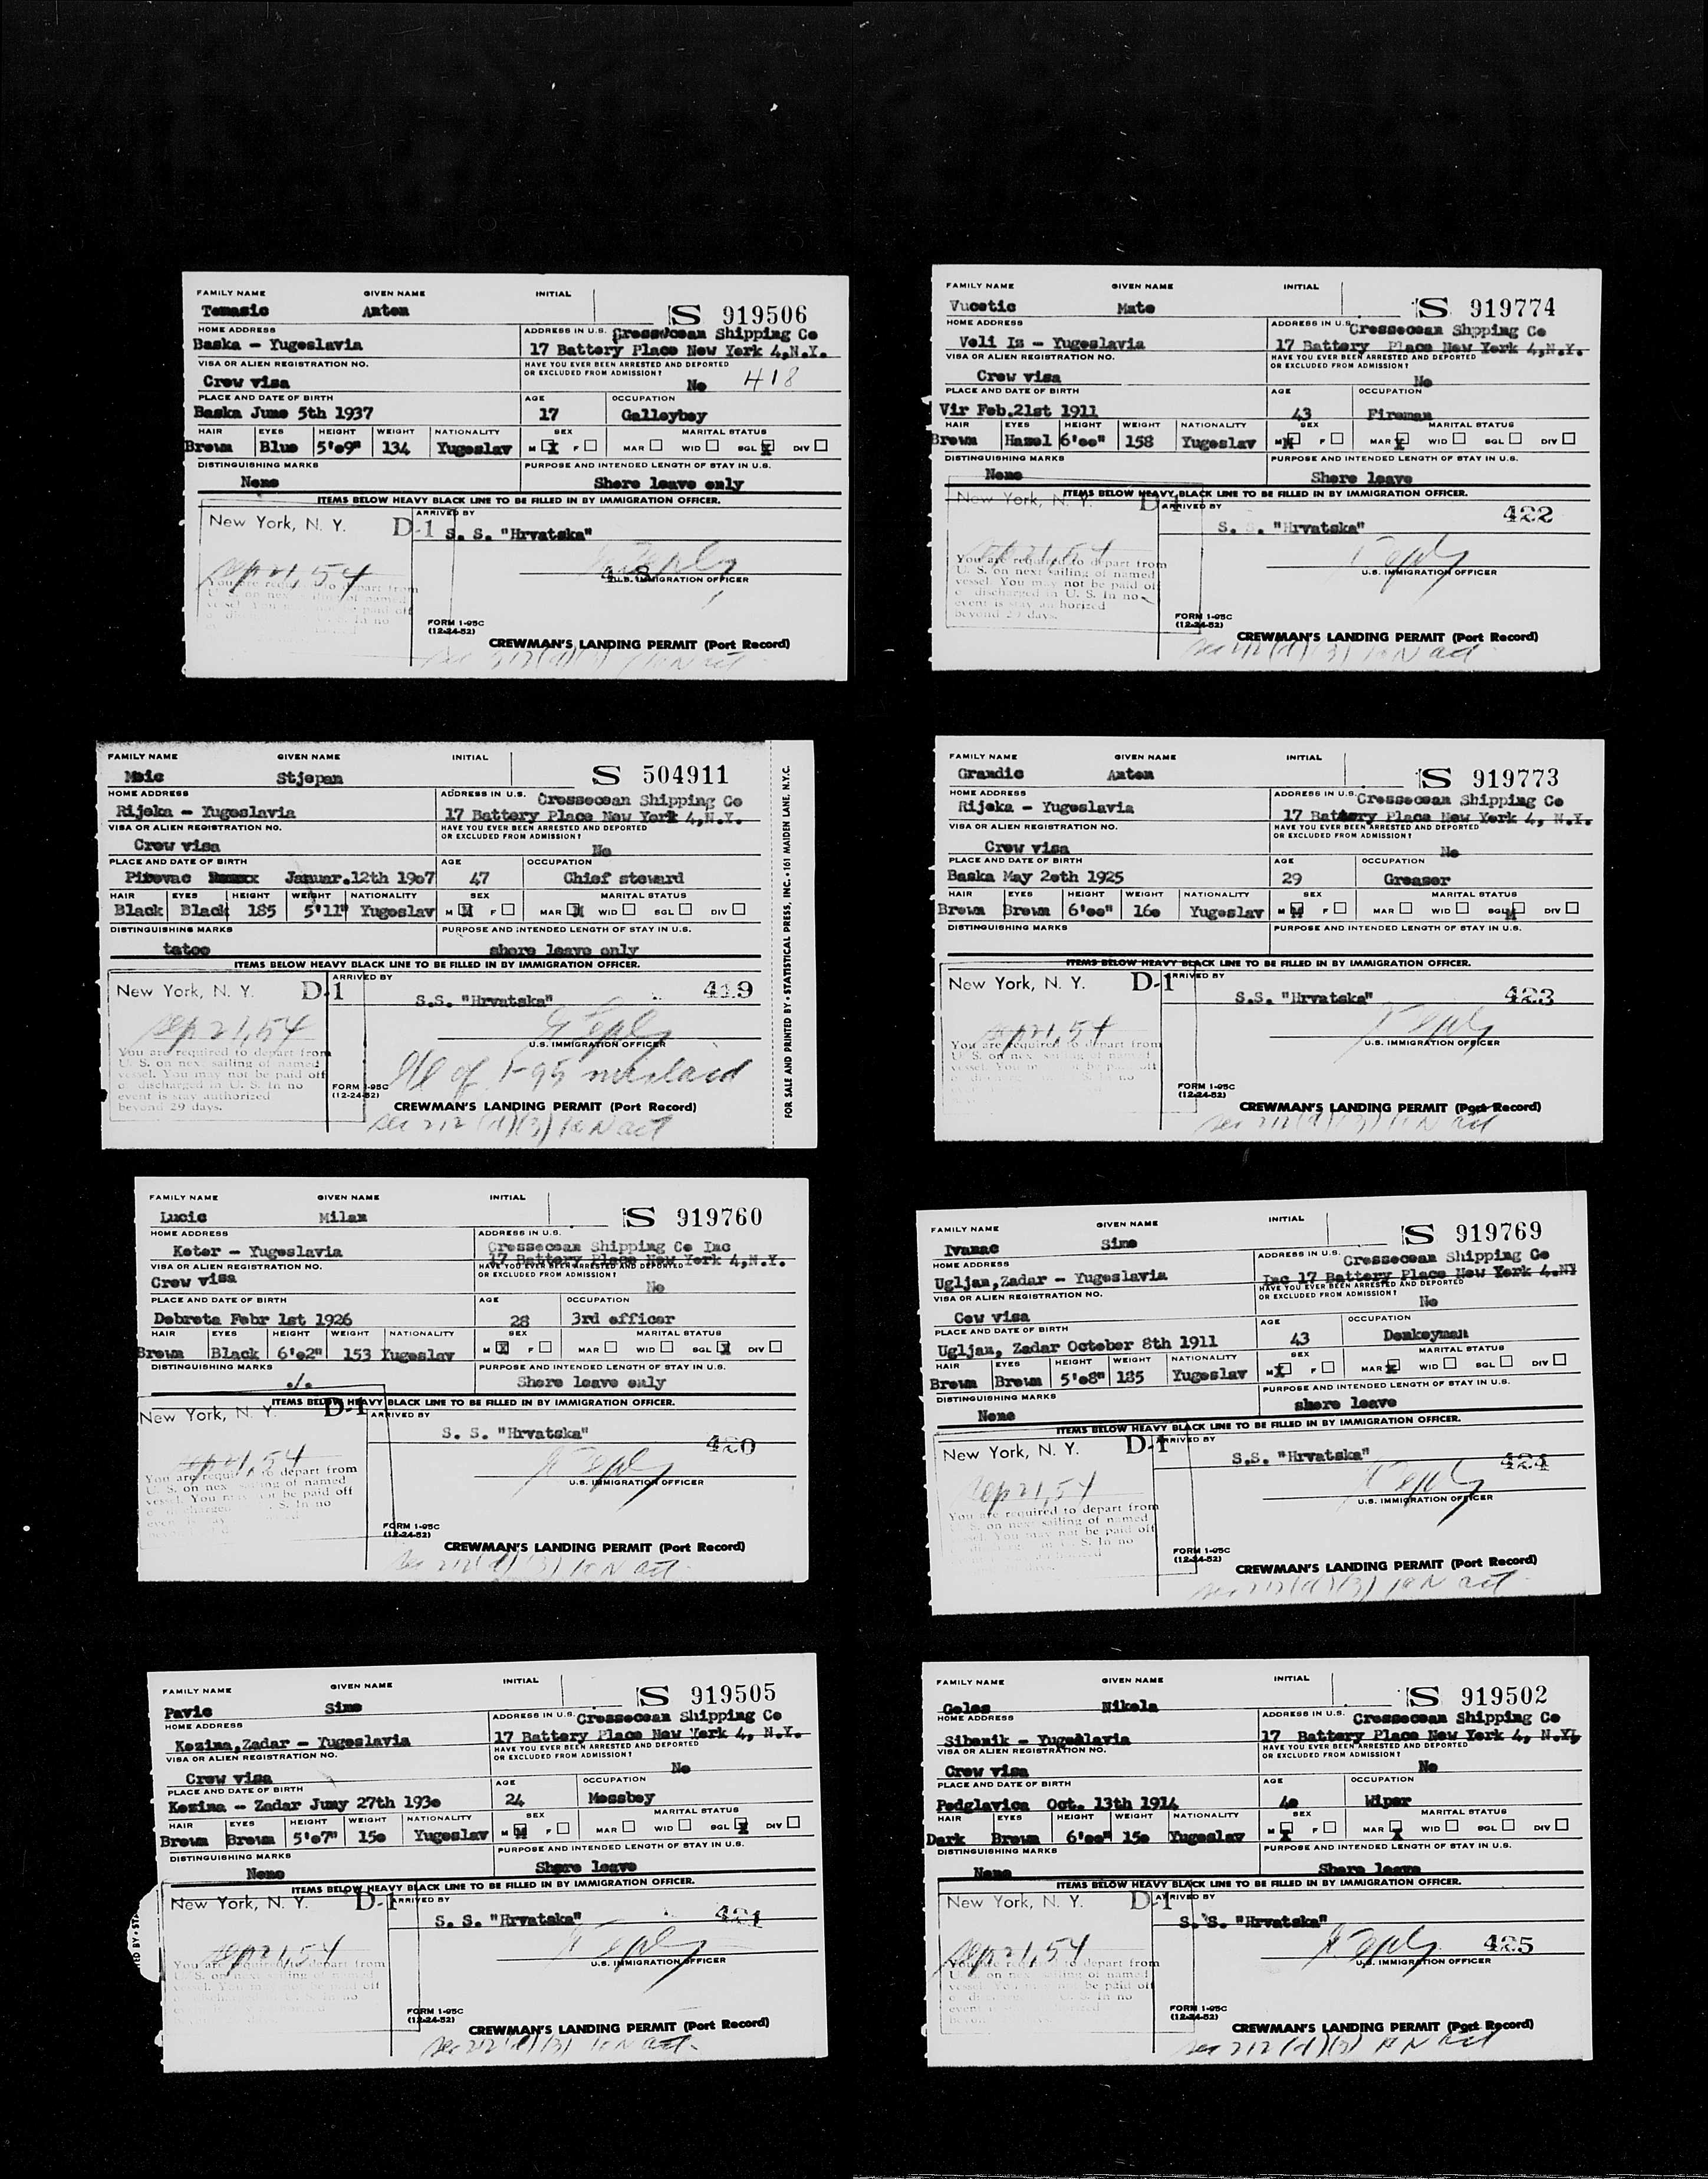 FAMILY NAME GIVEN NAME INITIAL
Tomasic Anton S 919506
HOME ADDRESS ADDRESS IN U.S. Crossocean Shipping Co
Baska - Yugoslavia 17 Battery Place New York 4,N.Y.
VISA OR ALIEN REGISTRATION NO. HAVE YOU EVER BEEN ARRESTED AND DEPORTED
OR EXCLUDED FROM ADMISSION?
Crew visa No 418
PLACE AND DATE OF BIRTH AGE OCCUPATION
Baska June 5th 1937 17 Galleyboy
HAIR EYES HEIGHT WEIGHT NATIONALITY SEX MARITAL STATUS
Brown Blue 5'o9" 134 Yugoslav M X F MAR WID SGL X DIV
DISTINGUISHING MARKS PURPOSE AND INTENDED LENGTH OF STAY IN U.S.
None Shore leave only
ITEMS BELOW HEAVY BLACK LINE TO BE FILLED IN BY IMMIGRATION OFFICER.
New York, N. Y. D-1 ARRIVED BY
S. S. "Hrvatska"
Sep 21, 54
U.S. IMMIGRATION OFFICER
FORM I-95C
(12-24-52)
CREWMAN'S LANDING PERMIT (Port Record)
Sec 212(d)(3) I&N act
FAMILY NAME GIVEN NAME INITIAL
Msic Stjepan S 504911
HOME ADDRESS ADDRESS IN U.S. Crossocean Shipping Co
Rijeka - Yugoslavia 17 Battery Place New York 4,N.Y.
VISA OR ALIEN REGISTRATION NO. HAVE YOU EVER BEEN ARRESTED AND DEPORTED
OR EXCLUDED FROM ADMISSION?
Crew visa No
PLACE AND DATE OF BIRTH AGE OCCUPATION
Pitovac Januar.12th 19o7 47 Chief steward
HAIR EYES HEIGHT WEIGHT NATIONALITY SEX MARITAL STATUS
Black Black 185 5'11" Yugoslav M X F MAR X WID SGL DIV
DISTINGUISHING MARKS PURPOSE AND INTENDED LENGTH OF STAY IN U.S.
tatoo shore leave only
ITEMS BELOW HEAVY BLACK LINE TO BE FILLED IN BY IMMIGRATION OFFICER.
New York, N. Y. D-1 ARRIVED BY
S.S. "Hrvatska" 419
Sep 21, 54
U.S. IMMIGRATION OFFICER
You are required to depart from
U. S. on next sailing of named
vessel. You may not be paid off
or discharged in U. S. In no
event is stay authorized
beyond 29 days.
of I-95 mislaid
FORM I-95C
(12-24-52)
CREWMAN'S LANDING PERMIT (Port Record)
Sec 212(d)(3) I&N act
FOR SALE AND PRINTED BY • STATISTICAL PRESS, INC. • 161 MAIDEN LANE, N.Y.C.
FAMILY NAME GIVEN NAME INITIAL
Lucic Milan S 919760
HOME ADDRESS ADDRESS IN U.S.
Kotor - Yugoslavia Crossocean Shipping Co Inc
17 Battery Place New York 4,N.Y.
VISA OR ALIEN REGISTRATION NO. HAVE YOU EVER BEEN ARRESTED AND DEPORTED
OR EXCLUDED FROM ADMISSION?
Crew visa No
PLACE AND DATE OF BIRTH AGE OCCUPATION
Dobrota Febr 1st 1926 28 3rd officer
HAIR EYES HEIGHT WEIGHT NATIONALITY SEX MARITAL STATUS
Brown Black 6'o2" 153 Yugoslav M X F MAR WID SGL X DIV
DISTINGUISHING MARKS PURPOSE AND INTENDED LENGTH OF STAY IN U.S.
./. Shore leave only
ITEMS BELOW HEAVY BLACK LINE TO BE FILLED IN BY IMMIGRATION OFFICER.
New York, N. Y. D-1 ARRIVED BY
S. S. "Hrvatska" 420
Sep 21, 54
U.S. IMMIGRATION OFFICER
FORM I-95C
(12-24-52)
CREWMAN'S LANDING PERMIT (Port Record)
Sec 212(d)(3) I&N act
FAMILY NAME GIVEN NAME INITIAL
Pavic Sime S 919505
HOME ADDRESS ADDRESS IN U.S. Crossocean Shipping Co
Kozina,Zadar - Yugoslavia 17 Battery Place New York 4, N.Y.
VISA OR ALIEN REGISTRATION NO. HAVE YOU EVER BEEN ARRESTED AND DEPORTED
OR EXCLUDED FROM ADMISSION?
Crew visa No
PLACE AND DATE OF BIRTH AGE OCCUPATION
Kozina - Zadar Juny 27th 193o 24 Messboy
HAIR EYES HEIGHT WEIGHT NATIONALITY SEX MARITAL STATUS
Brown Brown 5'o7" 15o Yugoslav M X F MAR WID SGL X DIV
DISTINGUISHING MARKS PURPOSE AND INTENDED LENGTH OF STAY IN U.S.
None Shore leave
ITEMS BELOW HEAVY BLACK LINE TO BE FILLED IN BY IMMIGRATION OFFICER.
New York, N. Y. D-1 ARRIVED BY
S. S. "Hrvatska" 421
Sep 21, 54
U.S. IMMIGRATION OFFICER
FORM I-95C
(12-24-52)
CREWMAN'S LANDING PERMIT (Port Record)
Sec 212(d)(3) I&N act
FAMILY NAME GIVEN NAME INITIAL
Vucetic Mate S 919774
HOME ADDRESS ADDRESS IN U.S. Crossocean Shpping Co
Veli Iz - Yugoslavia 17 Battery Place New York 4,N.Y.
VISA OR ALIEN REGISTRATION NO. HAVE YOU EVER BEEN ARRESTED AND DEPORTED
OR EXCLUDED FROM ADMISSION?
Crew visa No
PLACE AND DATE OF BIRTH AGE OCCUPATION
Vir Feb.21st 1911 43 Fireman
HAIR EYES HEIGHT WEIGHT NATIONALITY SEX MARITAL STATUS
Brown Hazel 6'oo" 158 Yugoslav M X F MAR X WID SGL DIV
DISTINGUISHING MARKS PURPOSE AND INTENDED LENGTH OF STAY IN U.S.
None Shore leave
ITEMS BELOW HEAVY BLACK LINE TO BE FILLED IN BY IMMIGRATION OFFICER.
New York, N. Y. D-1 ARRIVED BY
S. S. "Hrvatska" 422
Sep 21, 54
You are required to depart from
U. S. on next sailing of named
vessel. You may not be paid off
or discharged in U. S. In no
event is stay authorized
beyond 29 days.
U.S. IMMIGRATION OFFICER
FORM I-95C
(12-24-52)
CREWMAN'S LANDING PERMIT (Port Record)
Sec 212(d)(3) I&N act
FAMILY NAME GIVEN NAME INITIAL
Grandic Anton S 919773
HOME ADDRESS ADDRESS IN U.S. Crossocean Shipping Co
Rijeka - Yugoslavia 17 Battery Place New York 4, N.Y.
VISA OR ALIEN REGISTRATION NO. HAVE YOU EVER BEEN ARRESTED AND DEPORTED
OR EXCLUDED FROM ADMISSION?
Crew visa No
PLACE AND DATE OF BIRTH AGE OCCUPATION
Baska May 2oth 1925 29 Greaser
HAIR EYES HEIGHT WEIGHT NATIONALITY SEX MARITAL STATUS
Brown Brown 6'oo" 16o Yugoslav M X F MAR WID SGL X DIV
DISTINGUISHING MARKS PURPOSE AND INTENDED LENGTH OF STAY IN U.S.
ITEMS BELOW HEAVY BLACK LINE TO BE FILLED IN BY IMMIGRATION OFFICER.
New York, N. Y. D-1 ARRIVED BY
S.S. "Hrvatska" 423
Sep 21, 54
U.S. IMMIGRATION OFFICER
FORM I-95C
(12-24-52)
CREWMAN'S LANDING PERMIT (Port Record)
Sec 212(d)(3) I&N act
FAMILY NAME GIVEN NAME INITIAL
Ivanac Sime S 919769
HOME ADDRESS ADDRESS IN U.S. Crossocean Shipping Co
Ugljan,Zadar - Yugoslavia Inc 17 Battery Place New York 4.NY
VISA OR ALIEN REGISTRATION NO. HAVE YOU EVER BEEN ARRESTED AND DEPORTED
OR EXCLUDED FROM ADMISSION?
Cew visa No
PLACE AND DATE OF BIRTH AGE OCCUPATION
Ugljan, Zadar October 8th 1911 43 Donkeyman
HAIR EYES HEIGHT WEIGHT NATIONALITY SEX MARITAL STATUS
Brown Brown 5'o8" 185 Yugoslav M X F MAR X WID SGL DIV
DISTINGUISHING MARKS PURPOSE AND INTENDED LENGTH OF STAY IN U.S.
None shore leave
ITEMS BELOW HEAVY BLACK LINE TO BE FILLED IN BY IMMIGRATION OFFICER.
New York, N. Y. D-1 ARRIVED BY
S.S. "Hrvatska" 424
Sep 21, 54
U.S. IMMIGRATION OFFICER
FORM I-95C
(12-24-52)
CREWMAN'S LANDING PERMIT (Port Record)
Sec 212(d)(3) I&N act
FAMILY NAME GIVEN NAME INITIAL
Goles Nikola S 919502
HOME ADDRESS ADDRESS IN U.S. Crossocean Shipping Co
Sibenik - Yugoslavia 17 Battery Place New York 4, N.Y.
VISA OR ALIEN REGISTRATION NO. HAVE YOU EVER BEEN ARRESTED AND DEPORTED
OR EXCLUDED FROM ADMISSION?
Crew visa No
PLACE AND DATE OF BIRTH AGE OCCUPATION
Podglavica Oct. 13th 1914 4o Wiper
HAIR EYES HEIGHT WEIGHT NATIONALITY SEX MARITAL STATUS
Dark Brown 6'oo" 15o Yugoslav M X F MAR X WID SGL DIV
DISTINGUISHING MARKS PURPOSE AND INTENDED LENGTH OF STAY IN U.S.
None Shore leave
ITEMS BELOW HEAVY BLACK LINE TO BE FILLED IN BY IMMIGRATION OFFICER.
New York, N. Y. D-1 ARRIVED BY
S. S. "Hrvatska"
Sep 21, 54 425
U.S. IMMIGRATION OFFICER
FORM I-95C
(12-24-52)
CREWMAN'S LANDING PERMIT (Port Record)
Sec 212(d)(3) I&N act